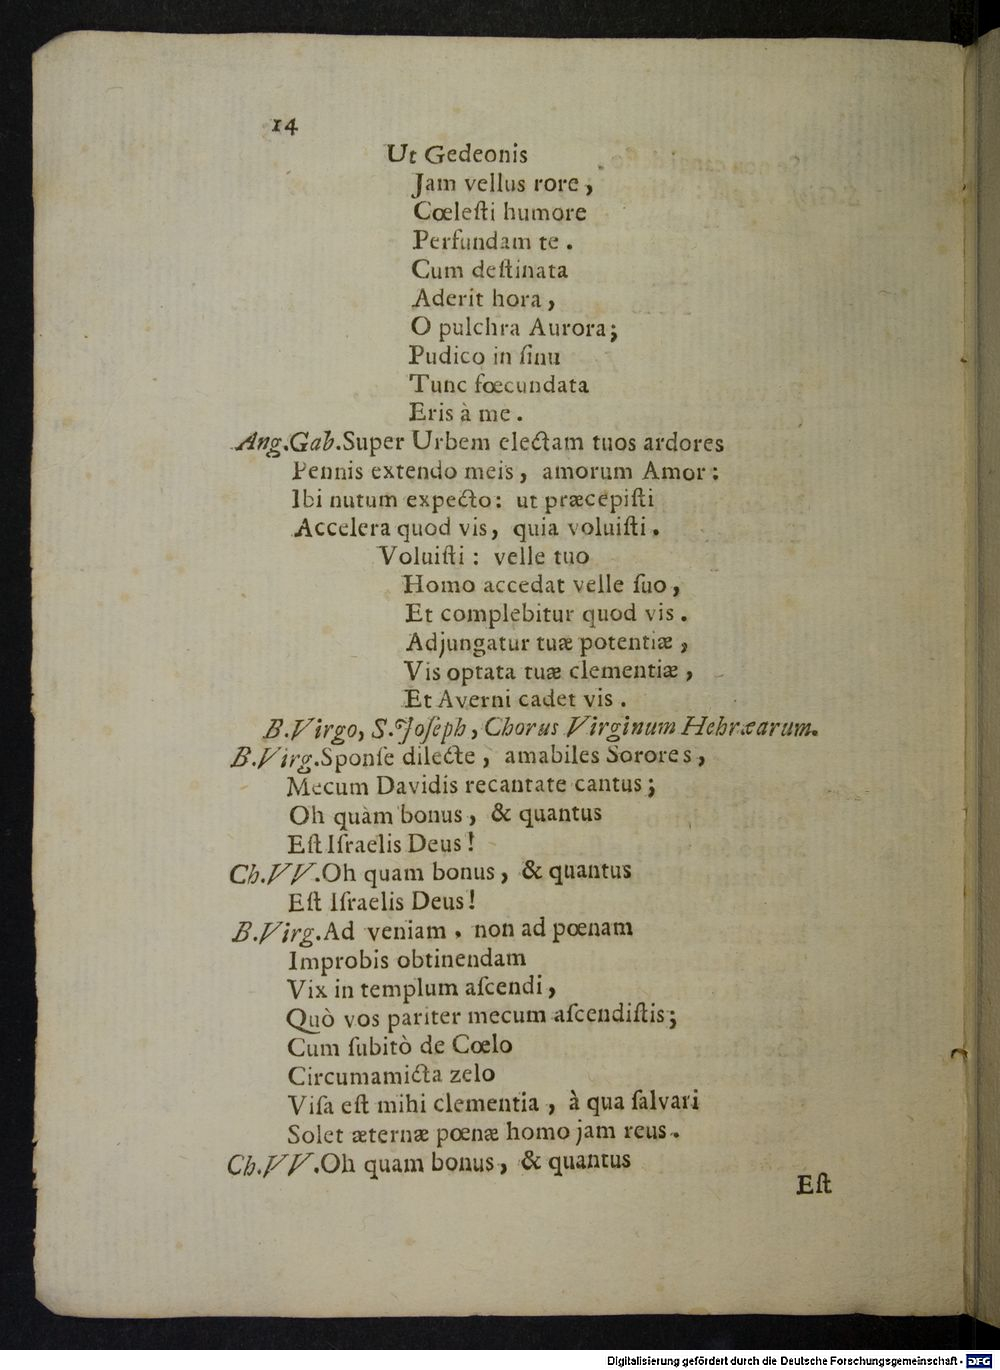 14
Ut Gedeonis
Jam vellus rore,
Cœleſti humore
Perfundam te.
Cum deſtinata
Aderit hora,
O pulchra Aurora;
Pudico in ſinu
Tunc fœcundata
Eris à me.
Ang.Gab.Super Urbem electam tuos ardores
Pennis extendo meis, amorum Amor:
Ibi nutum expecto: ut præcepiſti
Accelera quod vis, quia voluiſti.
Voluiſti: velle tuo
Homo accedat velle ſuo,
Et complebitur quod vis.
Adjungatur tuæ potentiæ,
Vis optata tuæ clementiæ,
Et Averni cadet vis.
B.Virgo, S.Joſeph, Chorus Virginum Hebræarum.
B.Virg.Sponſe dilecte, amabiles Sorores,
Mecum Davidis recantate cantus;
Oh quàm bonus, & quantus
Eſt Iſraelis Deus!
Ch.VV.Oh quam bonus, & quantus
Eſt Iſraelis Deus!
B.Virg.Ad veniam. non ad pœnam
Improbis obtinendam
Vix in templum aſcendi,
Quò vos pariter mecum aſcendiſtis;
Cum ſubitò de Cœlo
Circumamicta zelo
Viſa eſt mihi clementia, à qua ſalvari
Solet æternæ pœnæ homo jam reus.
Ch.VV.Oh quam bonus, & quantus
Eſt
Digitalisierung gefördert durch die Deutsche Forschungsgemeinschaft - DFG